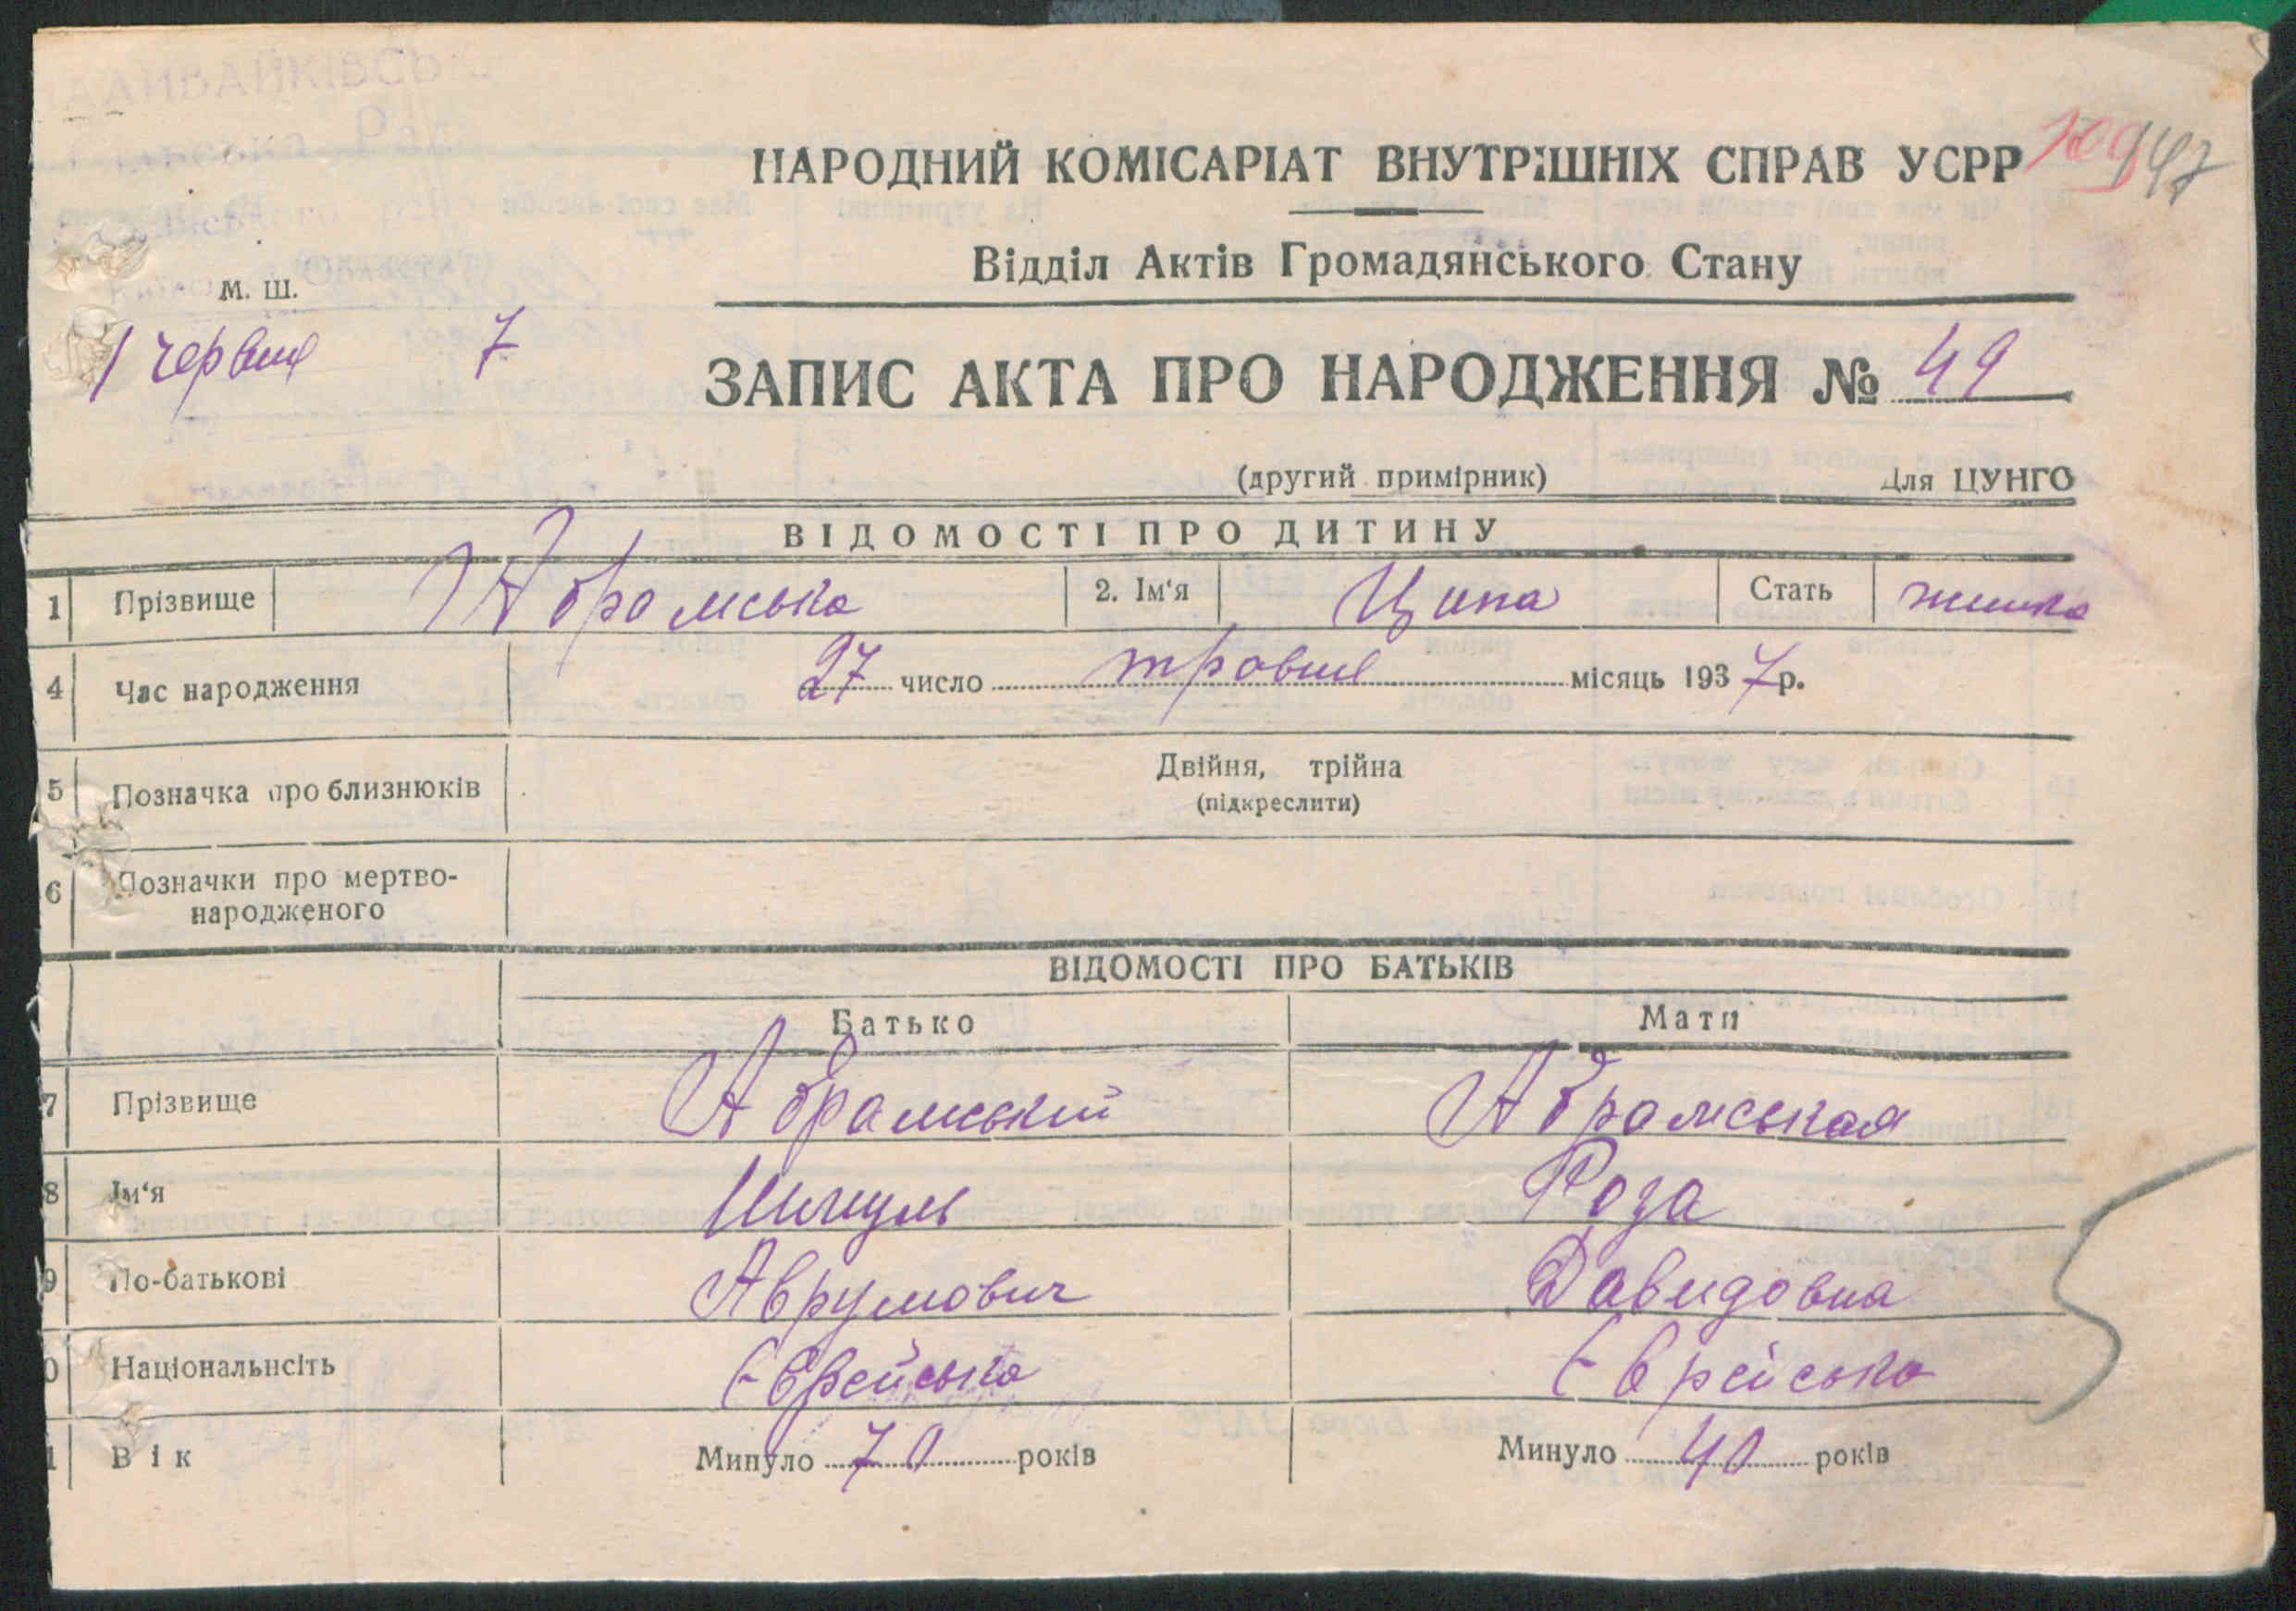 НАРОДНИЙ КОМІСАРІАТ ВНУТРІШНІХ СПРАВ УСРР
147
Відділ Актів Громадянського Стану
М. Ш.
1 червня 7
ЗАПИС АКТА ПРО НАРОДЖЕННЯ № 49
(другий примірник) Для ЦУНГО
ВІДОМОСТІ ПРО ДИТИНУ
1 Прізвище Абрамська 2. Ім'я Ципа Стать жінка
4 Час народження 27 число травня місяць 1937 р.
5 Позначка про близнюків Двійня, трійна
(підкреслити)
6 Позначки про мертво-
народженого
ВІДОМОСТІ ПРО БАТЬКІВ
Батько Мати
7 Прізвище Абрамський Абрамськая
8 Ім'я Шмуль Роза
9 По-батькові Аврумович Давидовна
0 Національнсіть Єврейська Єврейська
1 Вік Минуло 70 років Минуло 40 років